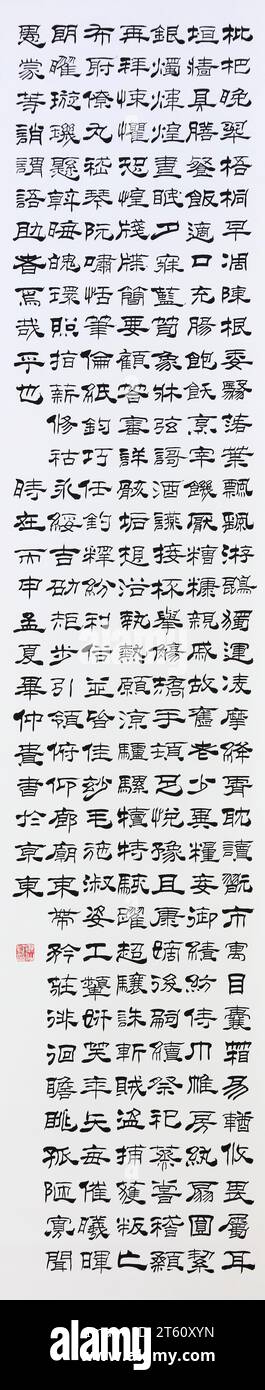 枇杷晚翠梧桐早凋陳根委翳落葉飄颻游鵾獨運凌摩絳霄耽讀翫市寓目囊箱易輶攸畏屬耳
垣墻具膳餐飯適口充腸飽飫烹宰饑厭糟糠親戚故舊老少異糧妾御績紡侍巾帷房紈扇圓絜
銀燭煒煌晝眠夕寐藍筍象牀弦謌酒讌接杯舉觴矯手頓足悅豫且康嫡後嗣續祭祀蒸嘗稽顙
再拜悚懼恐惶牋牒簡要顧荅審詳骸垢想浴執熱願涼驢騾犢特駭躍超驤誅斬賊盜捕獲叛亡
布射僚丸嵇琴阮嘯恬筆倫紙鈞巧任釣釋紛利俗並皆佳妙毛施淑姿工顰妍笑年矢每催曦暉
朗曜璇璣懸斡晦魄環照指薪修祜永綏吉劭矩步引領俯仰廊廟束帶矜莊徘徊瞻眺孤陋寡聞
愚蒙等誚謂語助者焉哉乎也 時在丙申孟夏畢仲貴書於京東
alamy
alamy
Image ID: 2T60XYN
www.alamy.com